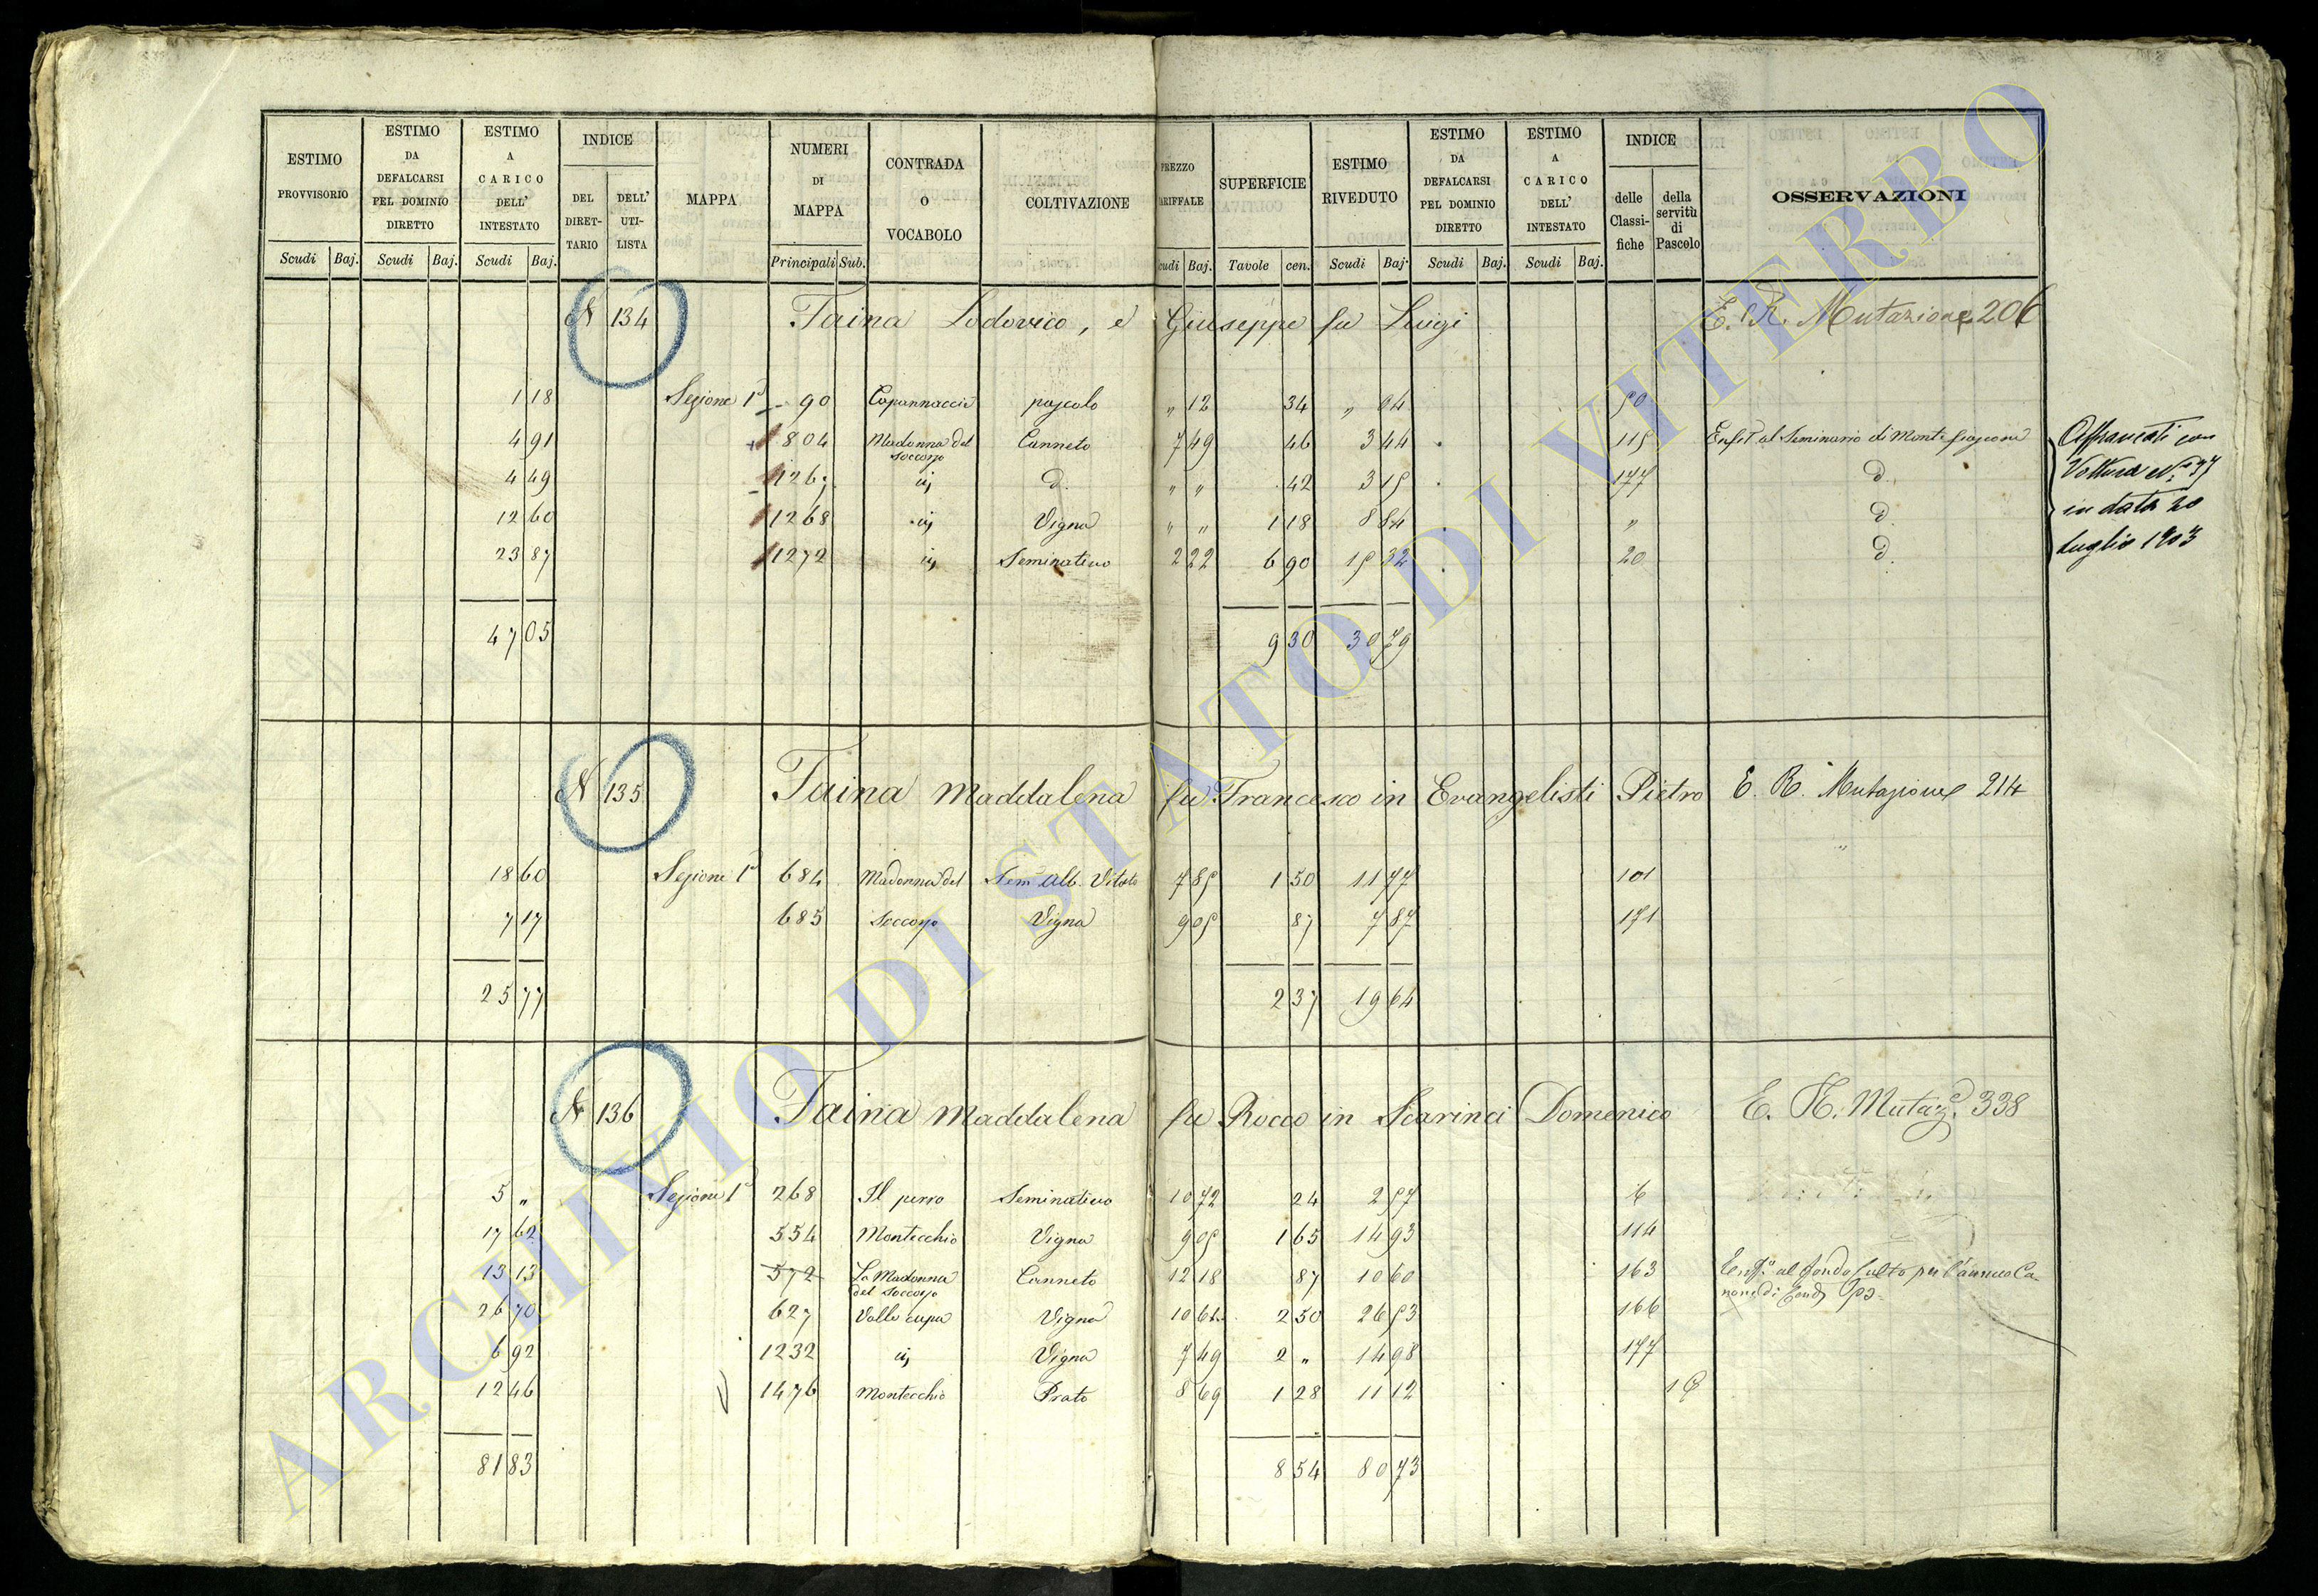 ESTIMO PROVVISORIO | ESTIMO DA DEFALCARSI PEL DOMINIO DIRETTO | ESTIMO A CARICO DELL' INTESTATO | INDICE DEL DIRETTARIO | DELL' UTILISTA | MAPPA | NUMERI DI MAPPA | CONTRADA O VOCABOLO | COLTIVAZIONE | PREZZO ARIFFALE | SUPERFICIE | ESTIMO RIVEDUTO | ESTIMO DA DEFALCARSI PEL DOMINIO DIRETTO | ESTIMO A CARICO DELL' INTESTATO | INDICE delle Classifiche | della servitù di Pascolo | OSSERVAZIONI
Scudi Baj. Scudi Baj. Scudi Baj. Principali Sub. cudi Baj. Tavole cen. Scudi Baj. Scudi Baj. Scudi Baj.
N 134 Taina Lodovico, e Giuseppe fu Luigi E. R. Mutazione 206
1 18 Sezione 1ª 90 Capannaccie pascolo " 12 34 " 04 50
4 91 804 Madonna del Soccorso Canneto 7 49 46 3 44 115 Enfit al Seminario di Montefiascone
4 49 126 iij d. " " 42 3 15 177 d.
12 60 1268 iij Vigna " " 1 18 8 84 " d.
23 87 1272 iij Seminativo 2 22 6 90 15 32 20 d.
Affrancati con
Voltura N. 37
in data 20
Luglio 1903
47 05 9 30 30 79
N 135 Taina Maddalena fu Francesco in Evangelisti Pietro E. R. Mutazione 214
18 60 Sezione 1ª 684 Madonna del Sem Alb. Vitato 7 85 1 50 11 77 101
7 17 685 Soccorso Vigna 9 05 87 7 87 171
25 77 2 37 19 64
N 136 Taina Maddalena fu Rocco in Scarinci Domenico E. R. Mutaz. 338
5 " Sezione 1ª 268 Il perro Seminativo 10 72 24 2 57 6
17 62 554 Montecchio Vigna 9 05 1 65 14 93 114
13 13 572 La Madonna del Soccorso Canneto 12 18 87 10 60 163 Enf. al fondo Culto per l'annuo Canone di
26 70 627 Valle cupa Vigna 10 61 2 50 26 53 166
6 92 1232 iij Vigna 7 49 2 " 14 98 177
12 46 1476 Montecchio Prato 8 69 1 28 11 12
81 83 8 54 80 73
ARCHIVIO DI STATO DI VITERBO